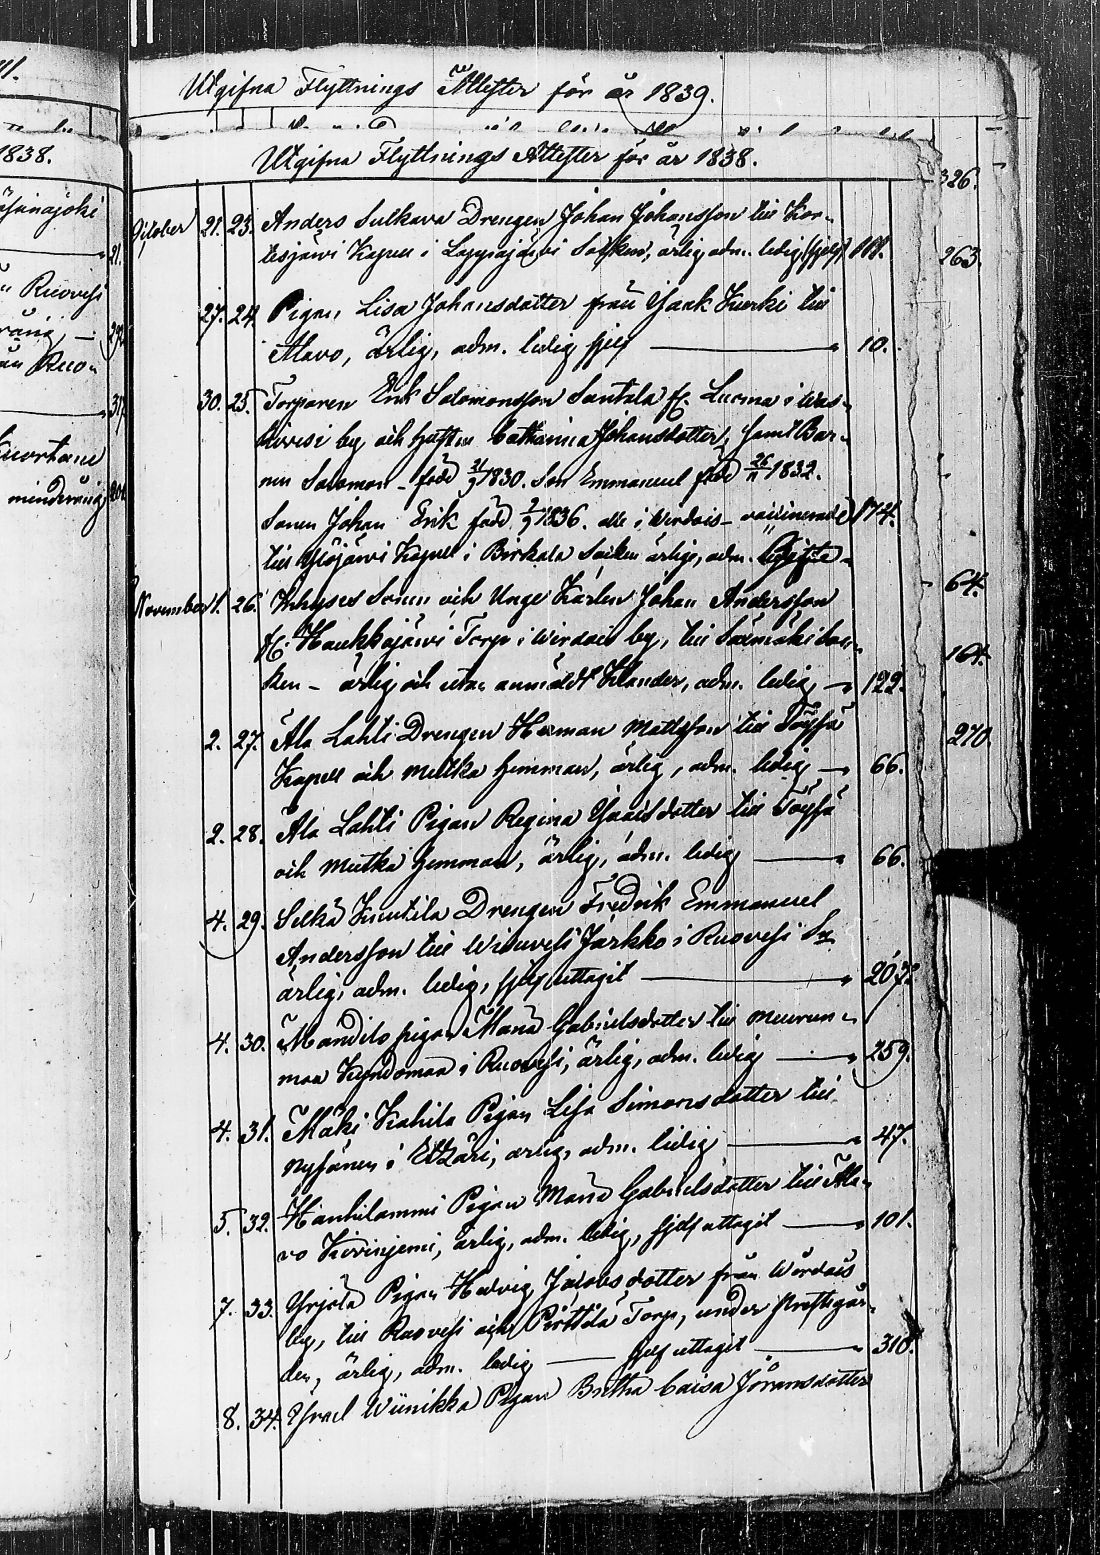 Utgifna Flyttnings Attester för år 1839.
Utgifna Flyttnings Attester för år 1838.
1838.
326.
263.
64.
164.
270.
October 21. 23. Anders Sulkava Drengen Johan Johansson till Kor-
tesjärvi Kapell i Lappajärvi Socken, ärlig, adm. ledig, sjelf 188.
27. 24. Pigan Lisa Johansdotter från Isaak Kurki till
Alavo, ärlig, adm. ledig sjelf 10.
30. 25. Torparen Erik Salomonsson Santala fr. Luoma i Was-
kivesi by och hustru Catharina Johansdotter, samt Bar-
nen Salomon född 1830. Son Emmanuel född 26/11 1832.
Sonen Johan Erik född 1836. alle i Wirdois vaccinerade 174.
till Ylöjärvi Kapell i Birkala Socken ärlige, adm. Gifte
November 1. 26. Inhyses Sonen och Unge Karlen Johan Andersson
fr. Haukkajärvi Torp i Wirdois by, till Säxmäki Soc-
ken - ärlig och utan anmäldt Klander, adm. ledig 122.
2. 27. Ala Lahti Drengen Herman Mattsson till Töysä
Kapell och Mutka hemman, ärlig, adm. ledig 66.
2. 28. Ala Lahti Pigan Regina Isaksdotter till Töysä
och Mutka hemman, ärlig, adm. ledig 66.
4. 29. Selkä Knutila Drengen Fredrik Emmanuel
Andersson till Wisuvesi Jarkko i Ruovesi Sn
ärlig, adm. ledig, sjelf uttagit 207.
4. 30. Mandilo pigan Maria Gabrielsdotter till Muurun-
maa Kyndömaa i Ruovesi, ärlig, adm. ledig 259.
4. 31. Mäki Kahila Pigan Lisa Simonsdotter till
Nysänen i Etzäri, ärlig, adm. ledig 47.
5. 32. Hankilammi Pigan Maria Gabrielsdotter till Ala-
vo Korrinjemi, ärlig, adm. ledig, sjelf uttagit 101.
7. 33. Yrjölä Pigan Hedvig Jacobsdotter från Wirdois
by, till Ruovesi och Pirttilä Torp, under Prestgår-
den, ärlig, adm. ledig sjelf uttagit 310.
8. 34. Israel Wiinikka Pigan Britha Caisa Jöransdotter